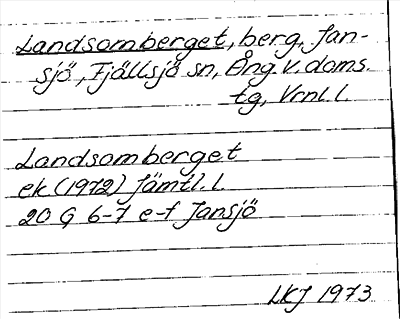 Landsomberget, berg, Jan-
sjö, Fjällsjö sn, Ång. v. doms.
tg, Vrnl. l.
Landsomberget
ek (1972) Jämtl. l.
20 G 6-7 e-f Jansjö
LKJ 1973